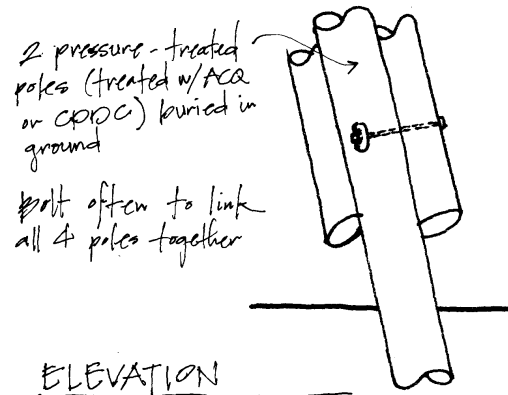 2 pressure-treated
poles (treated w/ACQ
or CDDC) buried in
ground
Bolt often to link
all 4 poles together
ELEVATION